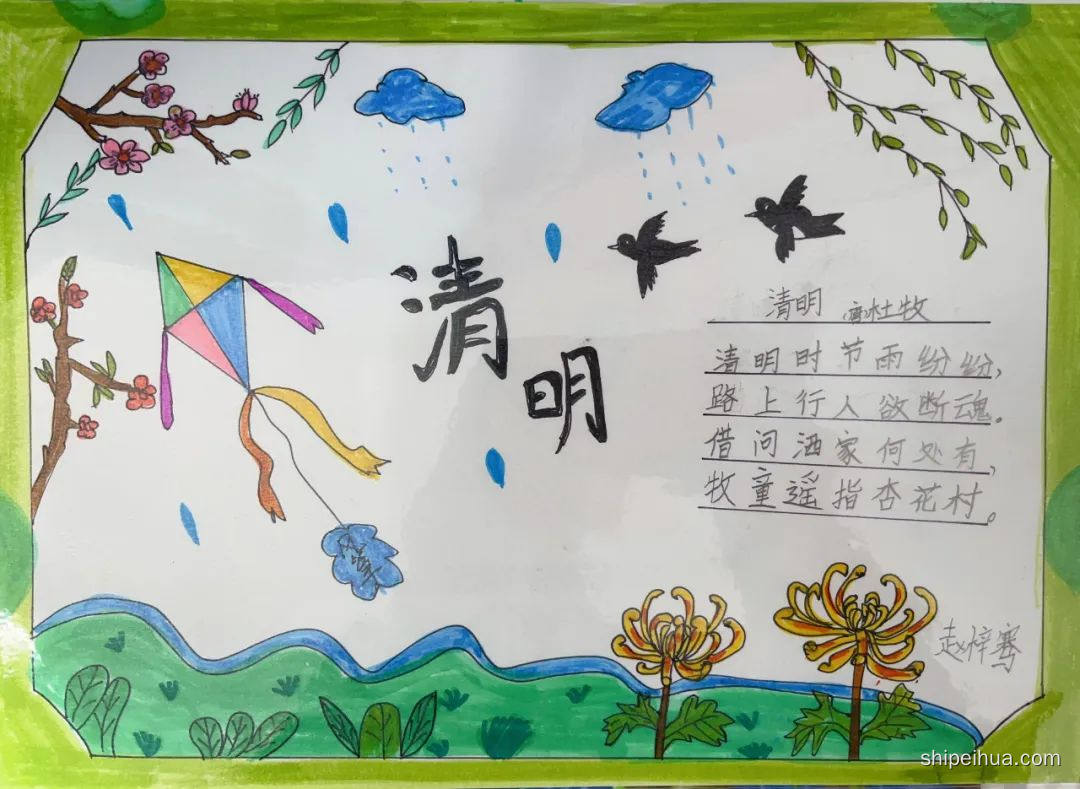 清
明
清明 杜牧
清明时节雨纷纷,
路上行人欲断魂。
借问洒家何处有,
牧童遥指杏花村。
赵梓骞
shipeihua.com